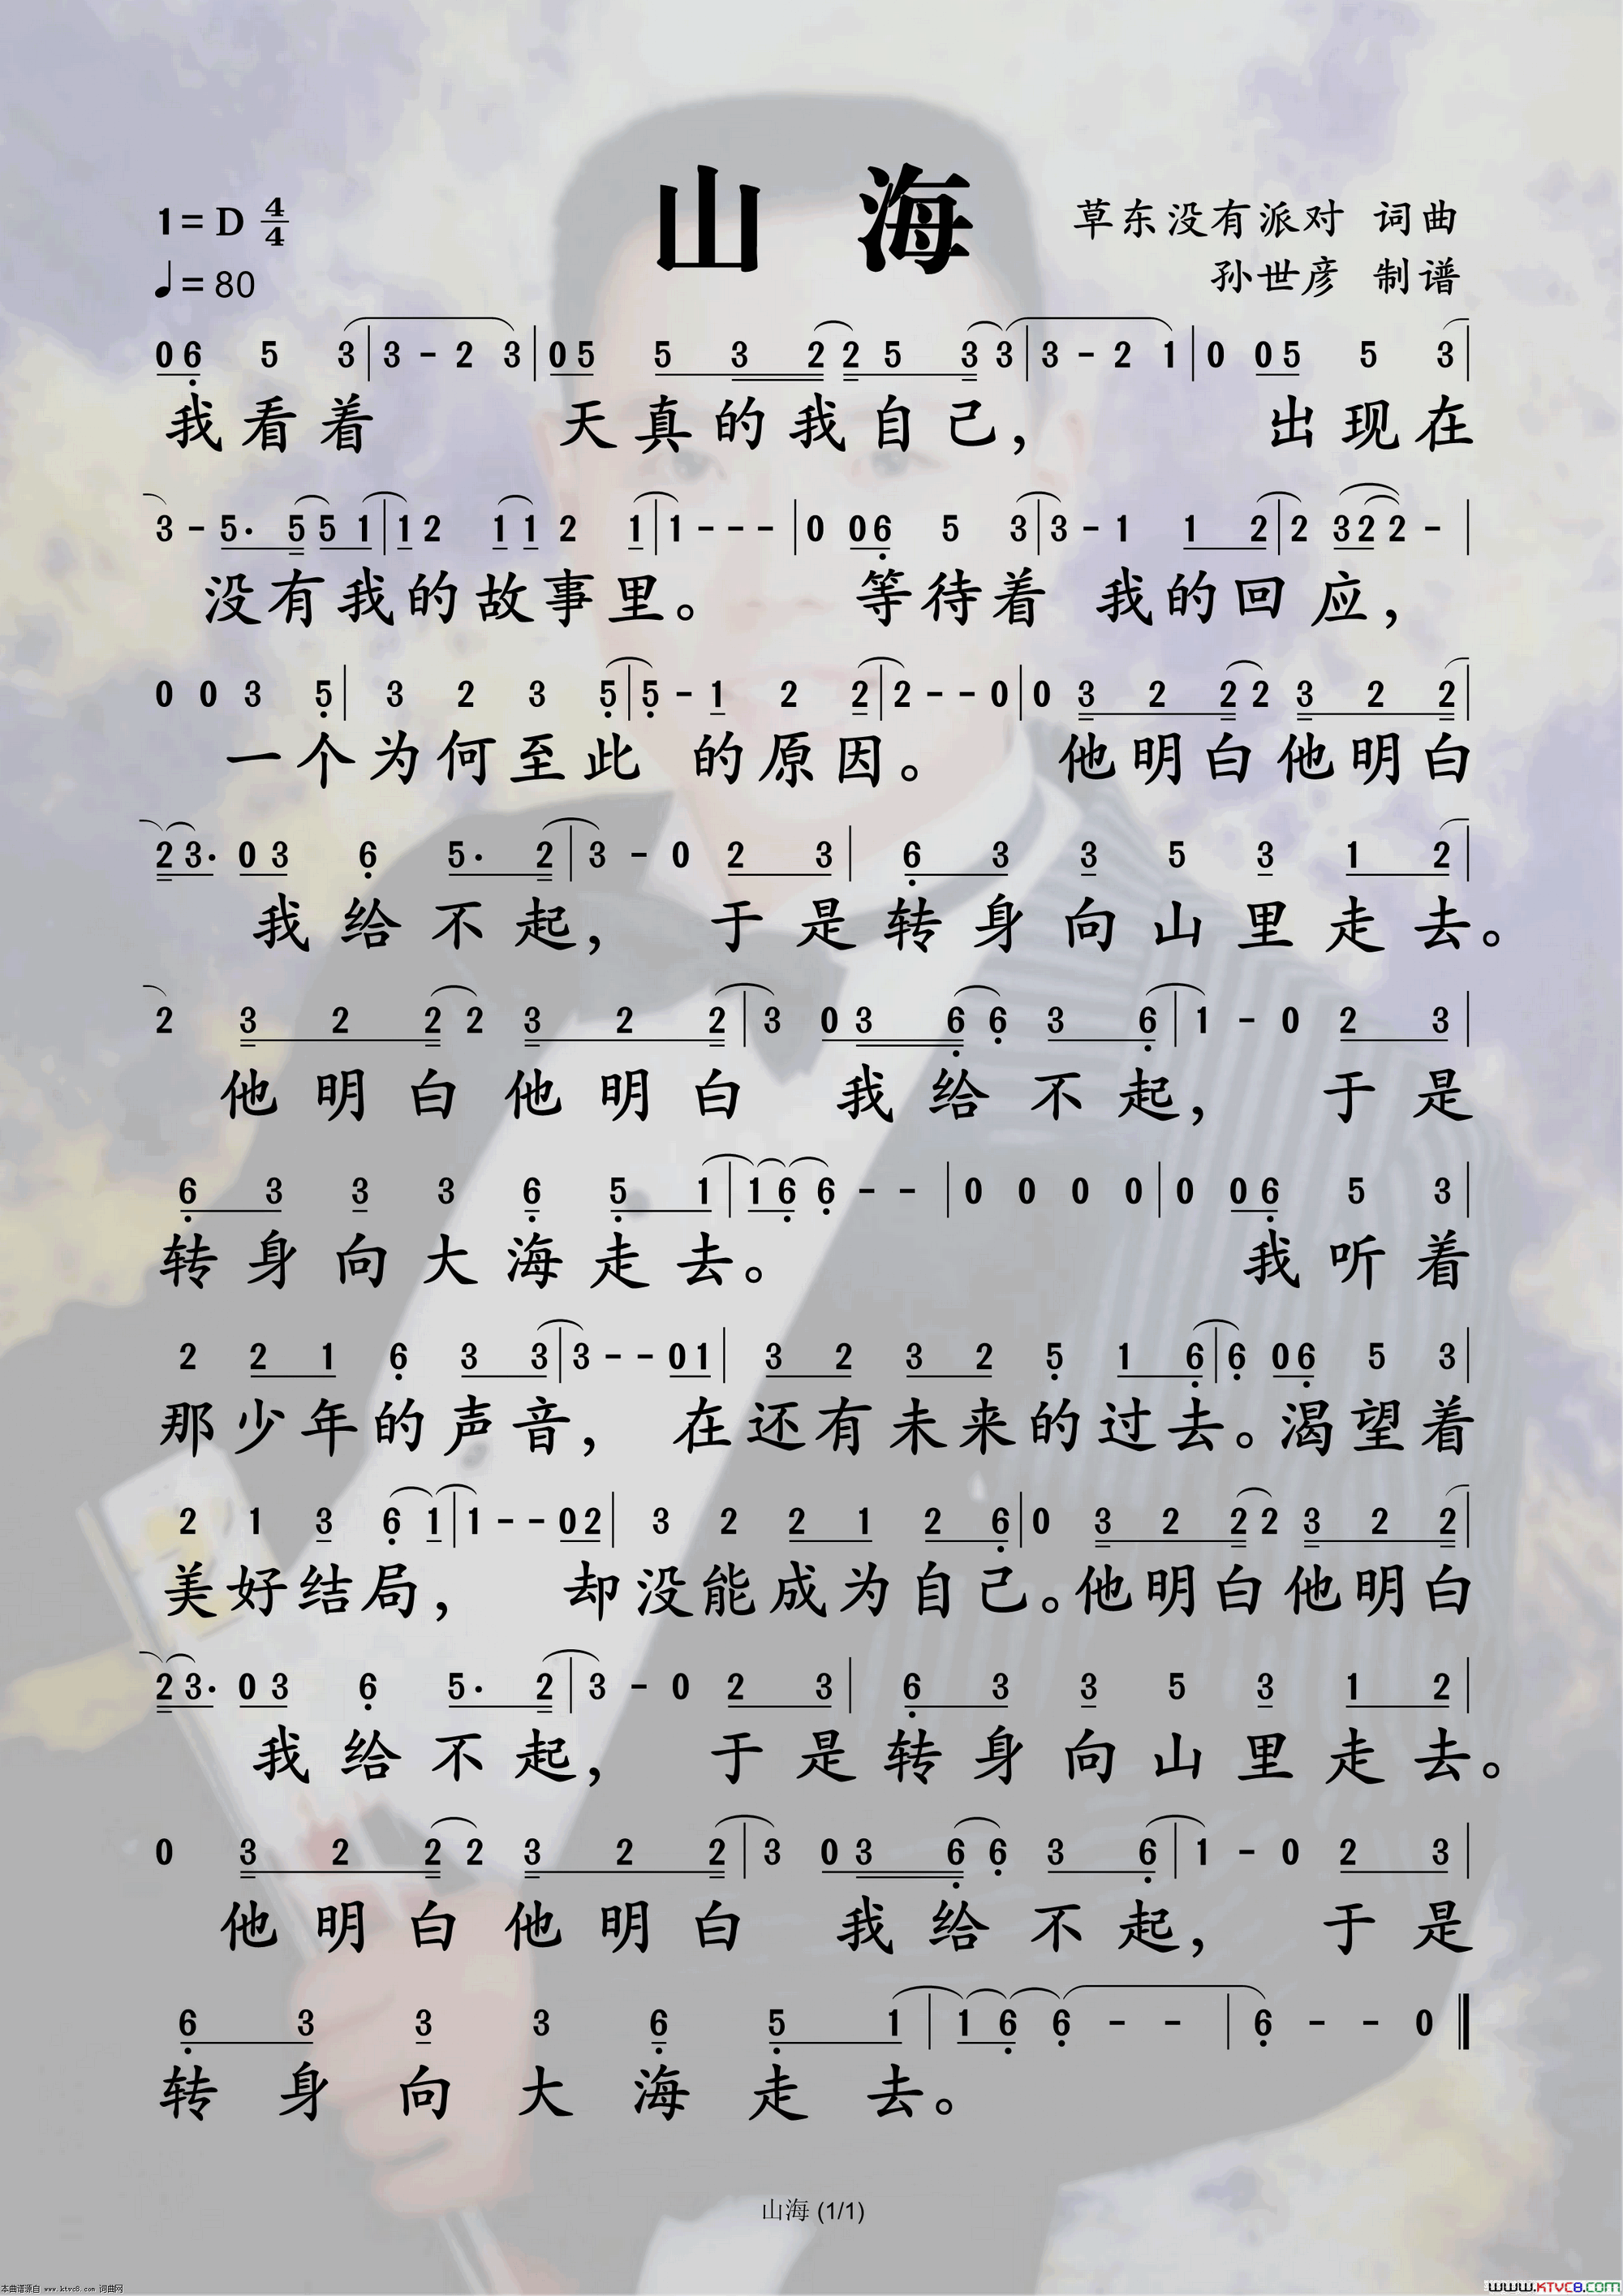 山 海
1=D 4/4
♩=80
草东没有派对 词曲
孙世彦 制谱
06 5 3|3 - 2 3|05 5 3 22 5 33|3 - 2 1|0 05 5 3|
我看着 天真的我自己， 出现在
3 - 5· 55 1|12 11 2 1|1 - - -|0 06 5 3|3 - 1 1 2|2 322 -|
没有我的故事里。 等待着 我的回应，
0 0 3 5| 3 2 3 5|5 - 1 2 2|2 - - 0|0 3 2 22 3 2 2|
一个为何至此 的原因。 他明白他明白
23· 03 6 5· 2|3 - 0 2 3| 6 3 3 5 3 1 2|
我给不起， 于是转身向山里走去。
2 3 2 22 3 2 2|3 03 66 3 6|1 - 0 2 3|
他明白他明白 我给不起， 于是
6 3 3 3 6 5 1|166 - -|0 0 0 0|0 06 5 3|
转身向大海走去。 我听着
2 2 1 6 3 3|3 - - 01| 3 2 3 2 5 1 6|6 06 5 3|
那少年的声音， 在还有未来的过去。渴望着
2 1 3 6 1|1 - - 02| 3 2 2 1 2 6|0 3 2 22 3 2 2|
美好结局， 却没能成为自己。他明白他明白
23· 03 6 5· 2|3 - 0 2 3| 6 3 3 5 3 1 2|
我给不起， 于是转身向山里走去。
0 3 2 22 3 2 2|3 03 66 3 6|1 - 0 2 3|
他明白他明白 我给不起， 于是
6 3 3 3 6 5 1|166 - -|6 - - 0‖
转身向大海走去。
山海 (1/1)
本曲谱源自 www.ktvc8.com 词曲网
www.KTVC8.com